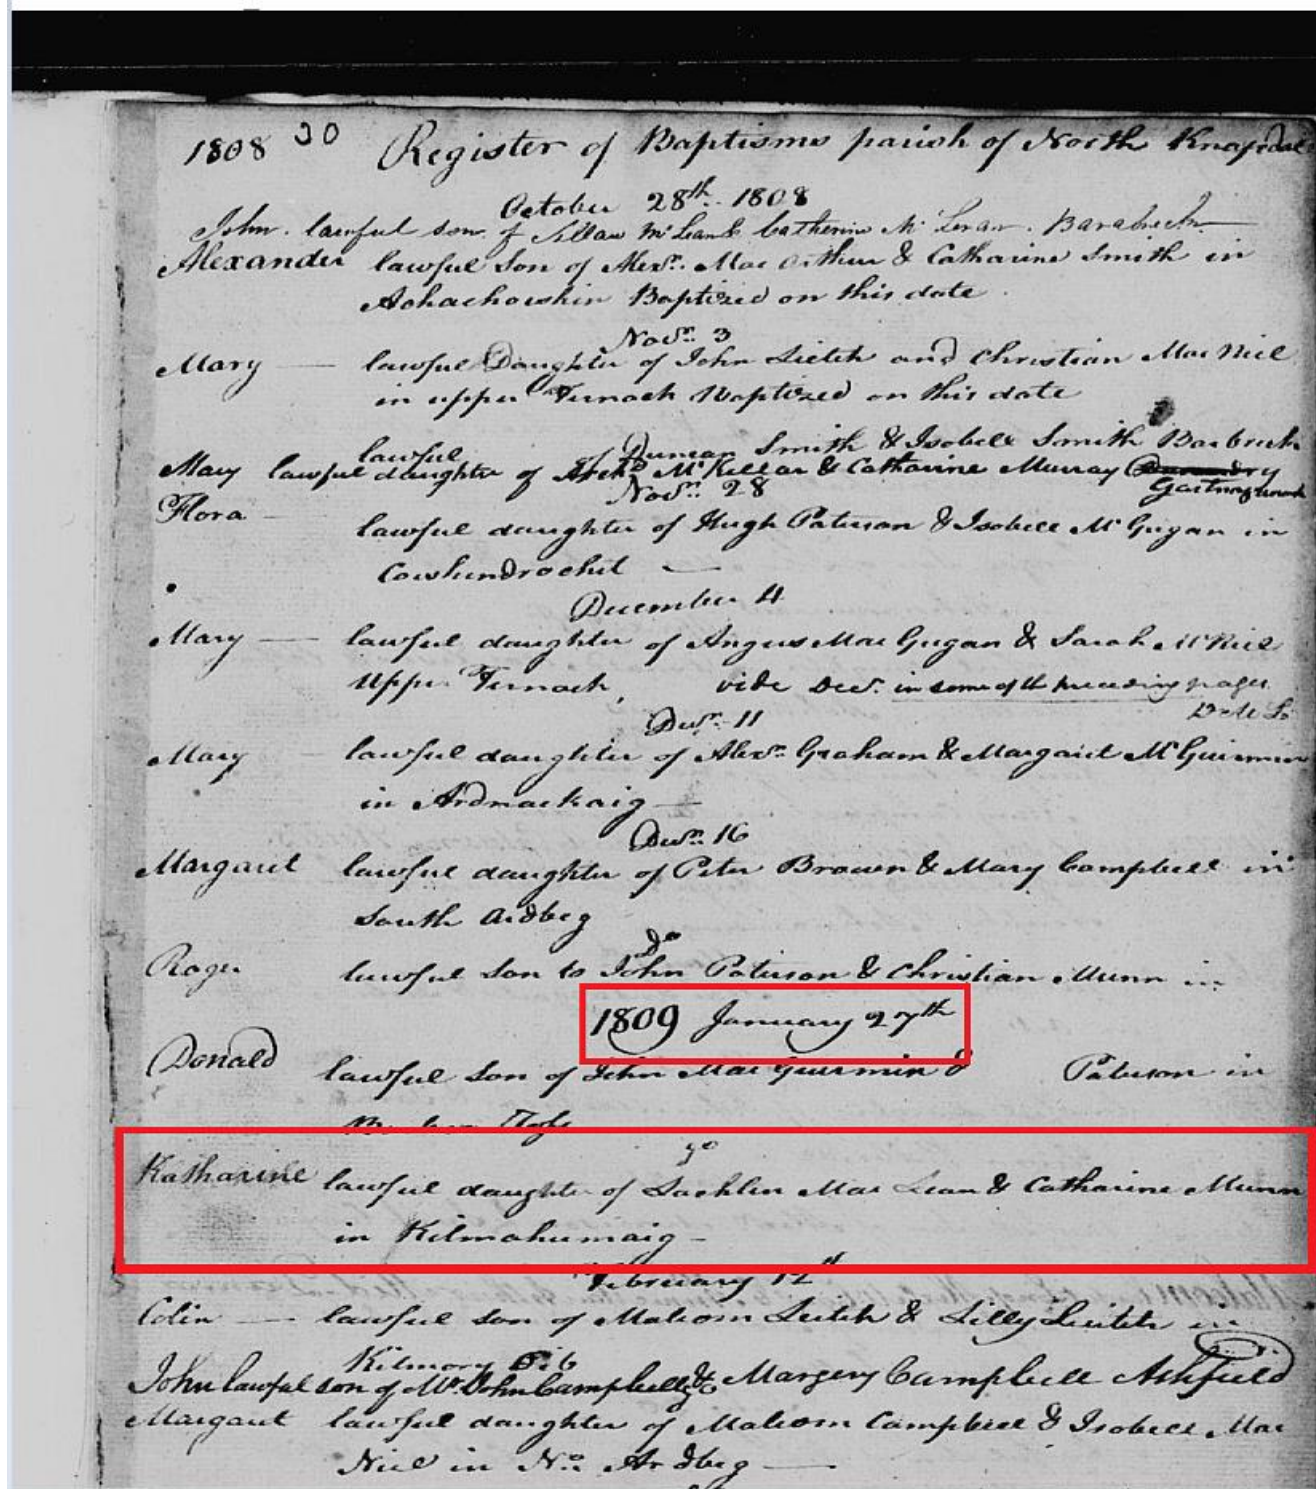 1808 30 Register of Baptisms parish of North Knapdale
October 28th 1808
John lawful son of Allan McLean & Catherine Mc
Alexander lawful Son of Alexr. Mac Arthur & Catharine Smith in
Achachoishin Baptized on this date
Novr. 3
Mary — lawful Daughter of John Leitch and Christian Mac Niel
in upper Fernoch Baptized on this date
lawful of Duncan Smith & Isobell Smith
Mary lawful daughter of Archd McKellar & Catharine Murray
Novr. 28
Flora — lawful daughter of Hugh Paterson & Isobell McGugan in
—
December 4
Mary — lawful daughter of Angus Mac Gugan & Sarah McNiel
Upper Fernoch, vide Decr. in some of the preceeding pages
Decr. 11
Mary — lawful daughter of Alexr. Graham & Margaret
in Ardnackaig —
Decr. 16
Margaret lawful daughter of Peter Brown & Mary Campbell in
South Ardbeg
Do
Roger lawful son to John Paterson & Christian Munn in
1809 January 27th
Donald lawful son of John Mac & Paterson in
Do
Katharine lawful daughter of Lachlin Mac Lean & Catharine Munn
in Kilmahumaig —
February 12th
Colin — lawful son of Malcom Leitch & Lilly Leitch in
Kilmory
John lawful son of Mr. John Campbell & Margery Campbell Ashfield
Margaret lawful daughter of Malcom Campbell & Isobell Mac
Niel in No. Ardbeg —